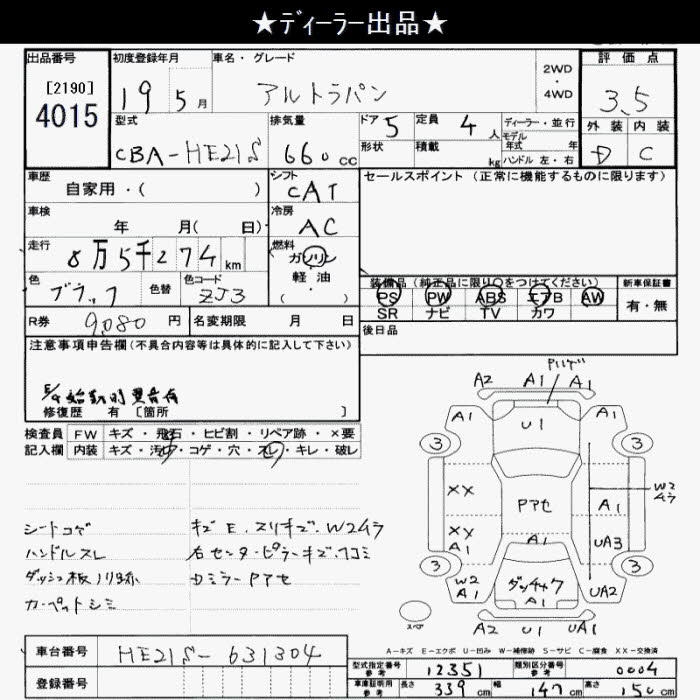 ★ディーラー出品★
出品番号 初度登録年月 車名・グレード 2WD・4WD 評価点
[2190] 4015 19 5月 アルトラパン 3.5
型式 排気量 ドア 5 定員 4人 ディーラー・並行 外装 内装
CBA-HE21S 660cc 形状 積載 kg モデル年式 年 D C
ハンドル 左・右
車歴 自家用・( ) シフト CAT セールスポイント(正常に機能するものに限ります)
車検 年 月( 日) 冷房 AC
走行 8万5千274km 燃料 ガソリン
色 ブラック 色替 色コード ZJ3 軽・油 ( ・ )
装備品(純正品に限り○をつけてください) 新車保証書
PS PW ABS エアB AW 有・無
SR ナビ TV カワ
R券 9,080円 名変期限 月 日 後日品
注意事項申告欄(不具合内容等は具体的に記入して下さい)
E/g始動時異音有
修復歴 有 [箇所 ]
検査員 FW キズ・飛石・ヒビ割・リペア跡・×要
記入欄 内装 キズ・汚れ・コゲ・穴・スレ・キレ・破レ
シートコゲ キズ E.スリキズ.W2ムラ
ハンドルスレ 右センターピラーキズ.凹コミ
ダッシュ板ノリ跡 Dミラー Pアセ
カーペットシミ
A2 A1 A1
A1 U1 A1
3 3
XX Pアセ A1 W2ムラ
XX A1 A1 UA3
3 3
W2 A1 ダッチャク A1 UA2
スペア A2 U1 UA1
A-キズ E-エクボ U-凹み W-補修跡 S-サビ C-腐食 XX-交換済
車台番号 HE21S-631304
型式指定番号 参考 12351 類別区分番号 参考 0004
登録番号
車庫証明用 参考 長さ 339cm 幅 147cm 高さ 150cm